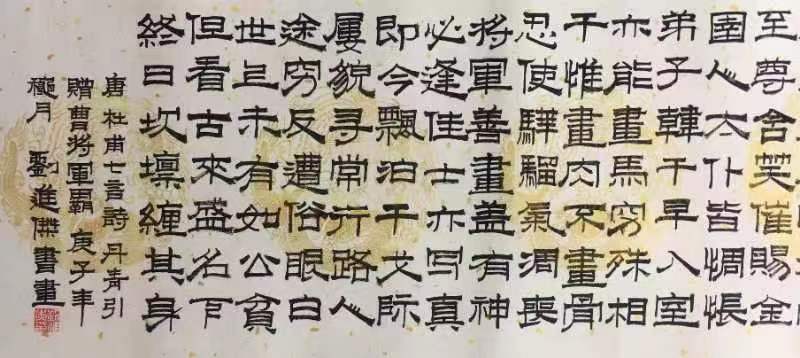 至尊含笑催賜金
圉人太仆皆惆悵
弟子韓干早入室
亦能畫馬穷殊相
干惟畫肉不畫骨
忍使驊騮氣凋喪
将軍善畫盖有神
必逢佳士亦写真
即今飄泊干戈际
屢貌寻常行路人
途穷反遭俗眼白
世上未有如公貧
但看古來盛名下
終日坎壈纏其身
唐杜甫七言詩丹青引
贈曹将軍霸 庚子年
穐月 劉進傑書畫